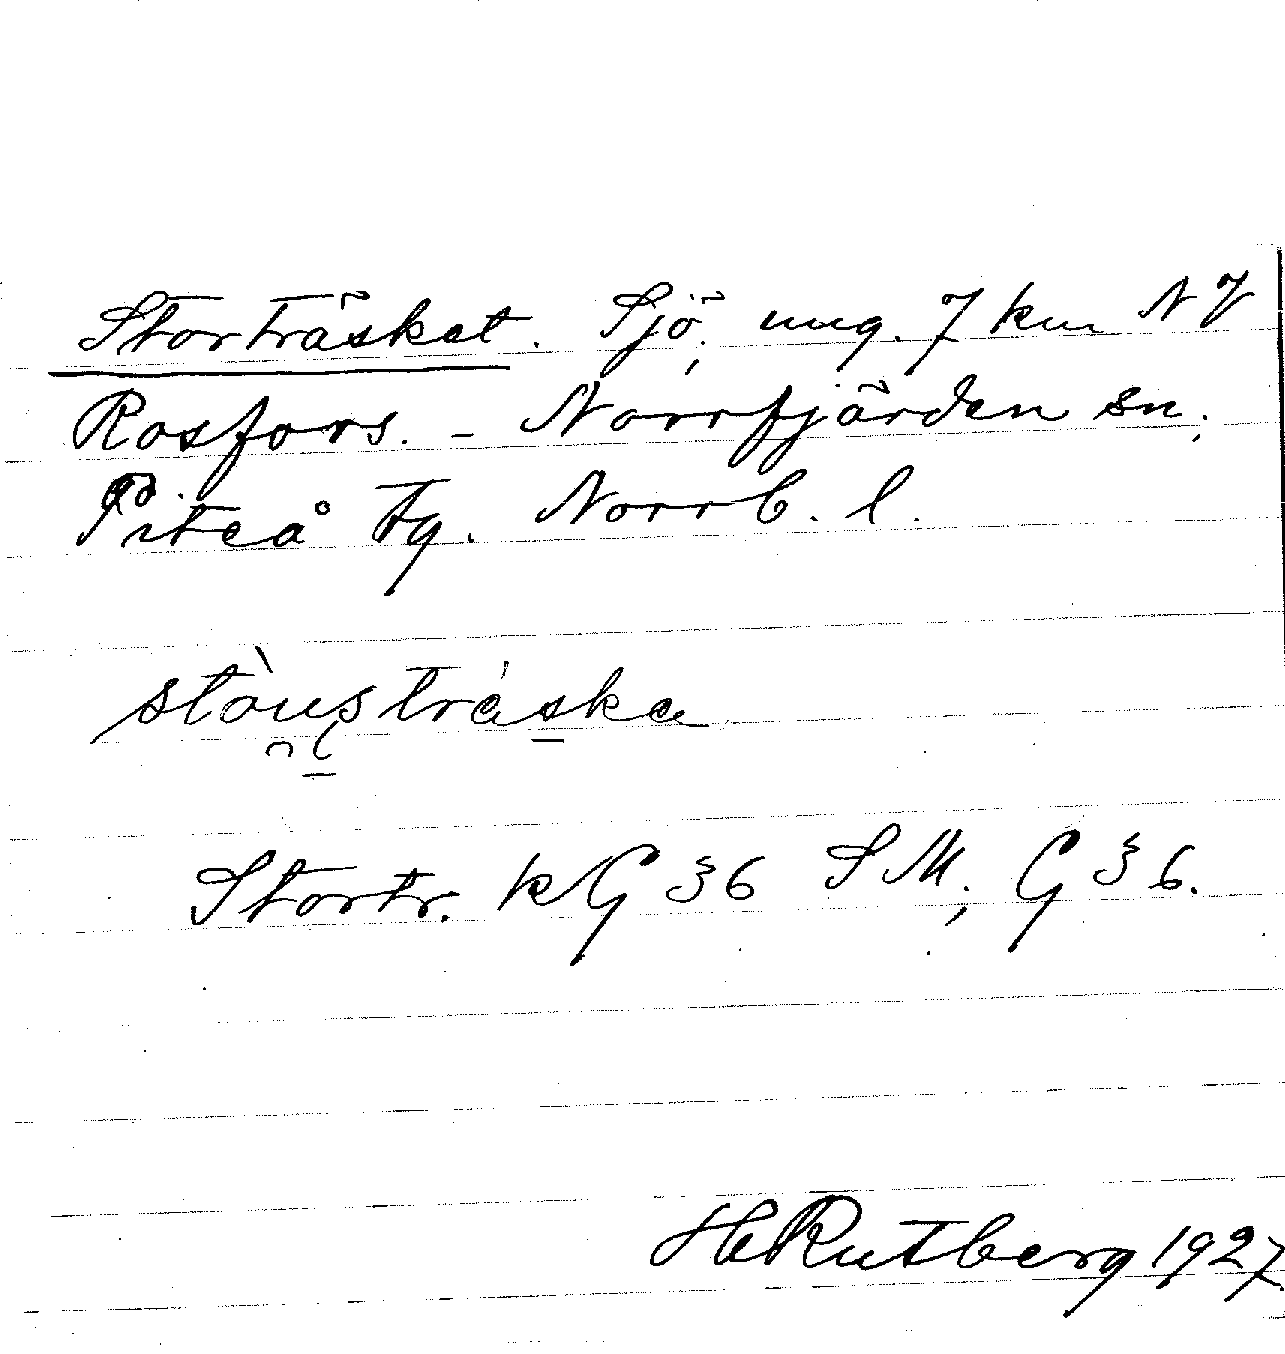 Storträsket. Sjö, ung. 7 km NV
Rosfors. - Norrfjärden sn,
Piteå tg. Norrb. l.
Stortr. KG 36 SM, G 36.
HRutberg 1927